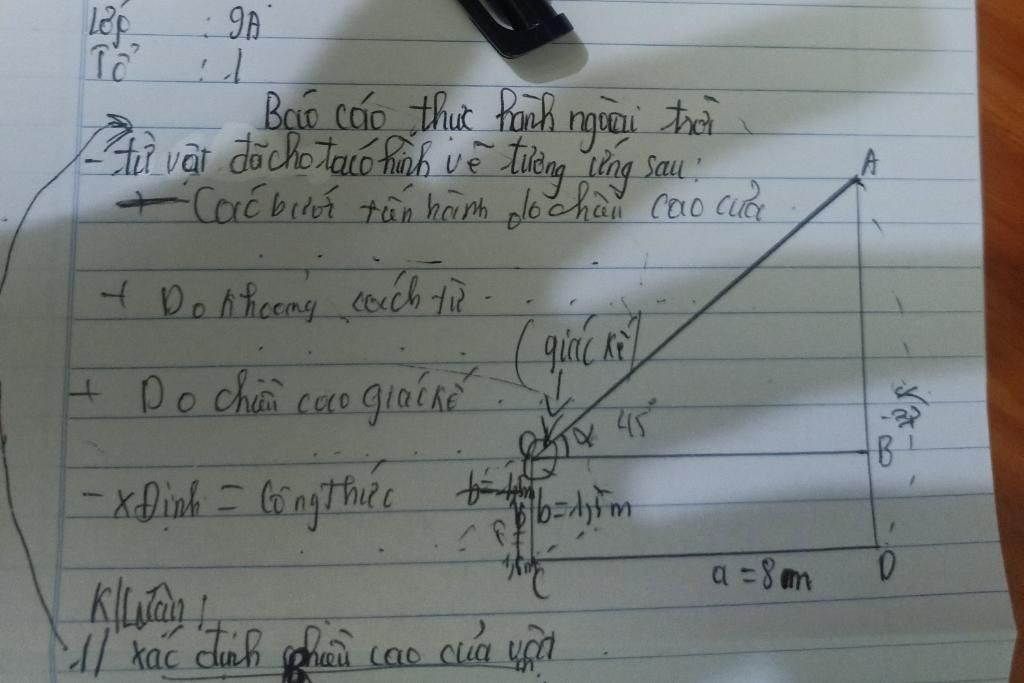 Lớp : 9A
Tổ : 1
Báo cáo thực hành ngoài trời
- từ vật đã cho ta có hình vẽ tương ứng sau:
+ Các bước tiến hành đo chiều cao của
+ Đo khoảng cách từ
(giác kế)
+ Đo chiều cao giác kế
- xĐịnh = Công thức
K/Luận!
1// xác định chiều cao của vật
A
α 45°
O
B
b=1,5m
C
a = 8m
D